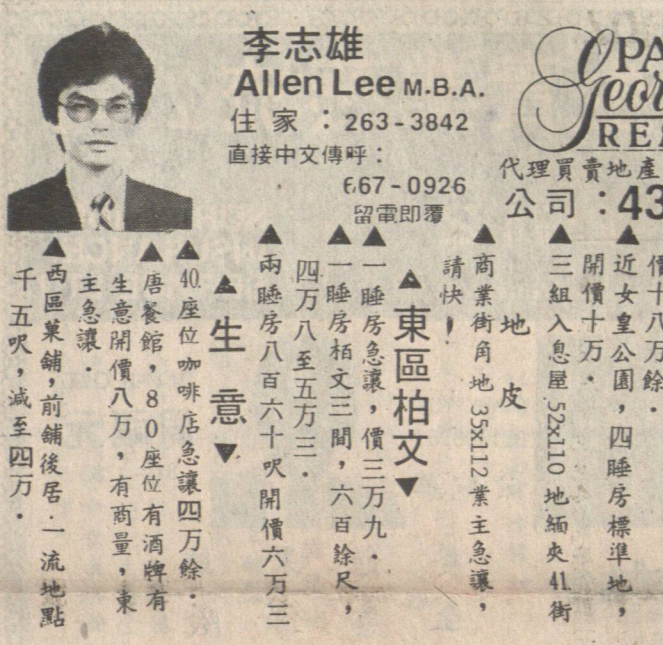 李志雄
Allen Lee M.B.A.
住家：263-3842
直接中文傳呼：
667-0926
留電即覆
PA
Geor
REA
代理買賣地產
公司：43
價十八万餘．
▲近女皇公園，四睡房標準地，
開價十万．
▲三組入息屋 52x110 地緬夾 41.街
地皮
▲商業街角地 35x112 業主急讓，
請快！
▲東區柏文▼
▲一睡房急讓，價三万九．
▲一睡房柏文三間，六百餘尺，
四万八至五万三．
▲兩睡房八百六十呎開價六万三
▲生意▼
▲40.座位咖啡店急讓四万餘．
▲唐餐館，80座位有酒牌有
生意開價八万，有商量，東
主急讓．
▲西區菓舖，前舖後居．一流地點
千五呎，減至四万．